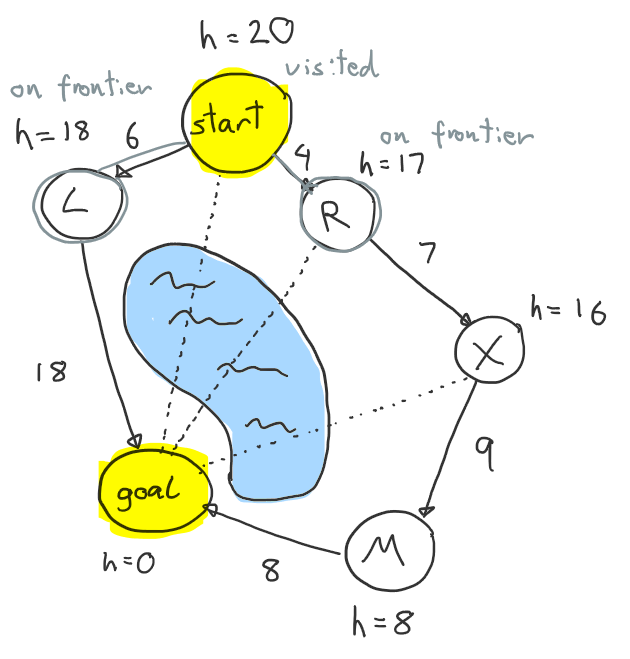 h = 20
visited
on frontier
h = 18
6
start
4
on frontier
h = 17
L
R
7
h = 16
X
18
9
goal
h = 0
8
M
h = 8